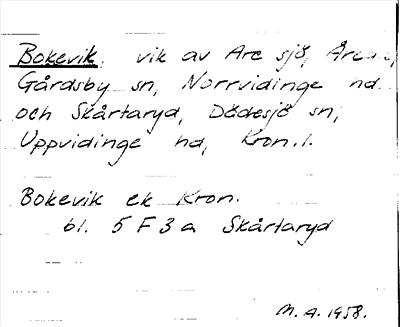 Bokevik, vik av Are sjö,
Gårdsby sn, Norrvidinge hd
och Skårtaryd, Dädesjö sn,
Uppvidinge hd, Kron.l.
Bokevik ek Kron.
bl. 5 F 3 a Skårtaryd
M.A. 1958.